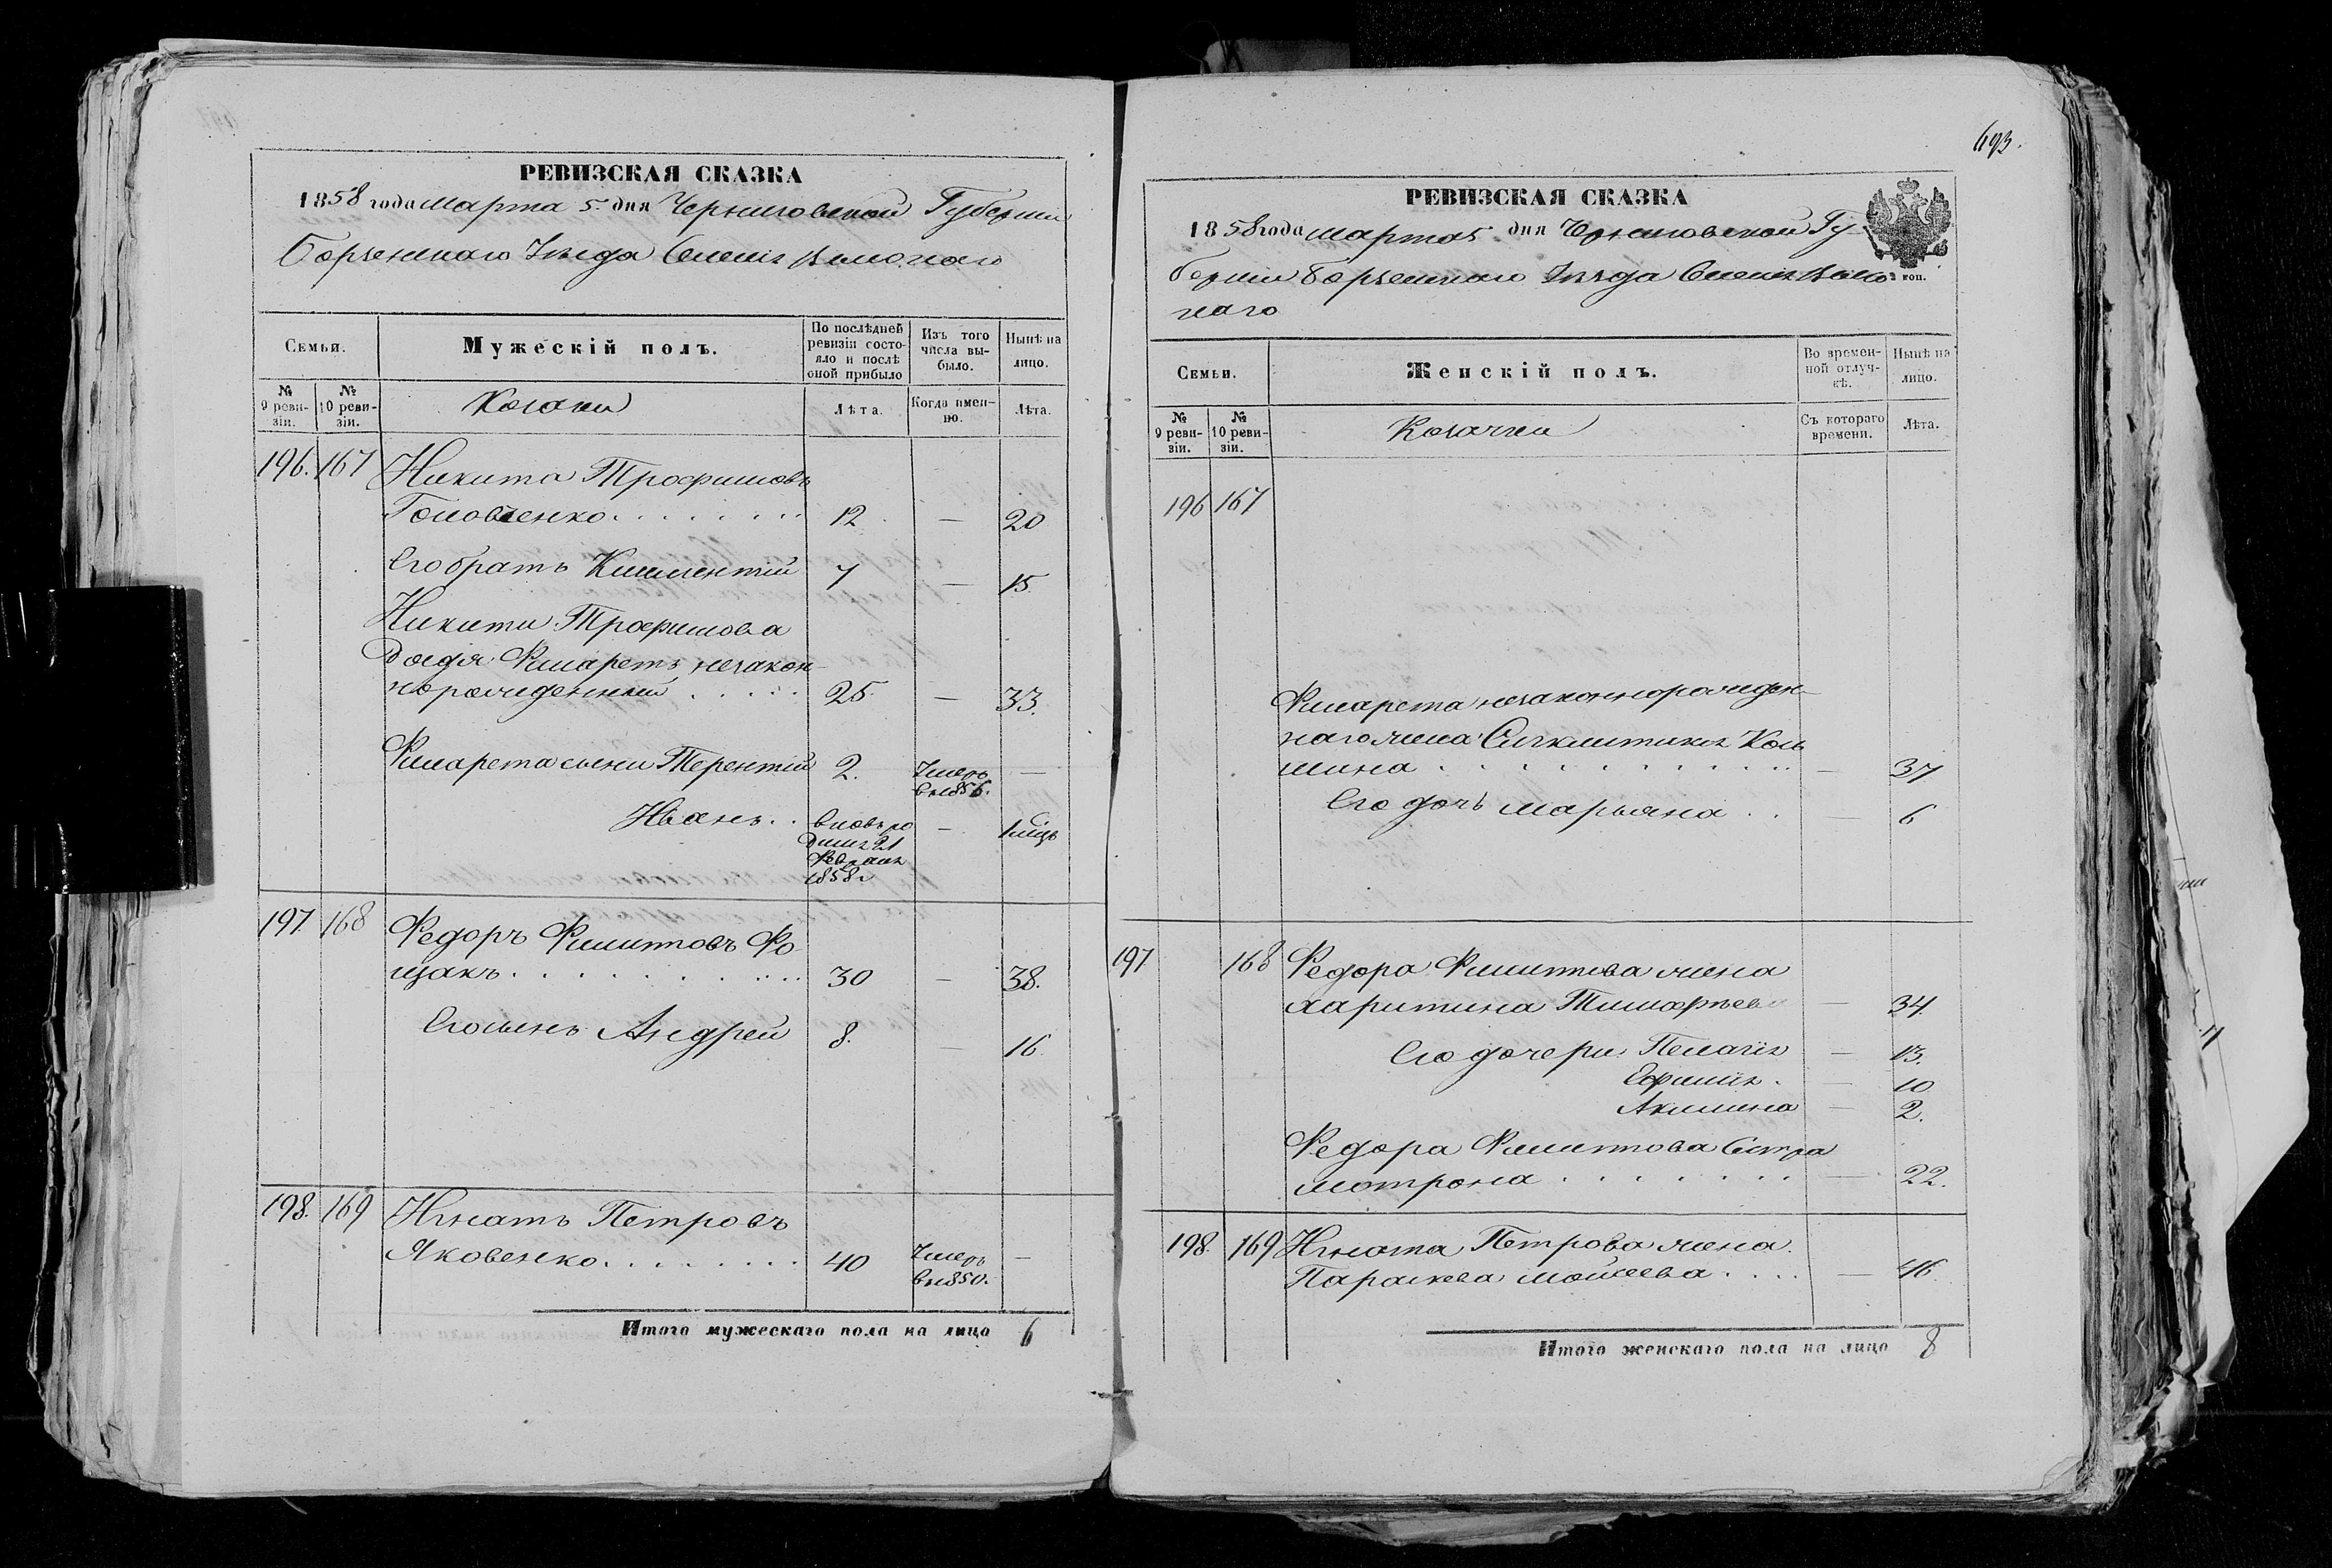 693.
РЕВИЗСКАЯ СКАЗКА
1858 года марта 5 дня Черниговской Губерніи
Борзенскаго Уѣзда Селенія
Семьи.
Мужескій полъ.
По послѣдней ревизіи состо-
яло и послѣ
оной прибыло
Изъ того
числа вы-
было.
Нынѣ на
лицо.
№
9 реви-
зіи.
№
10 реви-
зіи.
Козаки
Лѣта.
Когда имен-
но.
Лѣта.
196. 167 Никита Трофимовъ
Головченко 12 — 20
Его братъ Климентій 7 — 15
Никиты Трофимова
Дядя Филаретъ незакон-
норожденный 25 — 33.
Филарета сыны Терентій 2. Умеръ —
въ 1856.
Иванъ вновь ро — 1 мцъ
дился 21
Февраля
1858 г
197 168 Федоръ Филиповъ Фо
щакъ 30 — 38.
Его сынъ Андрей 8. — 16
198. 169 Игнатъ Петровъ
Яковенко 40 Умеръ —
въ 1850.
Итого мужескаго пола на лицо 6
РЕВИЗСКАЯ СКАЗКА
1858 года марта 5 дня Черниговской Гу-
берніи Борзенскаго Уѣзда Селенія
наго
коп.
Семьи.
Женскій полъ.
Во времен-
ной отлуч-
кѣ.
Нынѣ на
лицо.
№
9 реви-
зіи.
№
10 реви-
зіи.
Козачки
Съ котораго
времени.
Лѣта.
196 167
Филарета незаконнорожден-
наго жена Сигклитикія Козь
мина — 37
Его дочь Марьяна — 6
197 168 Федора Филипова жена
Харитина Тимофѣева — 34
Его дочери Пелагія — 13.
Ефимія — 10
Акилина — 2.
Федора Филипова Сестра
Мотрона — 22.
198. 169 Игната Петрова жена
Параскева Мойсеева — 46
Итого женскаго пола на лицо 8